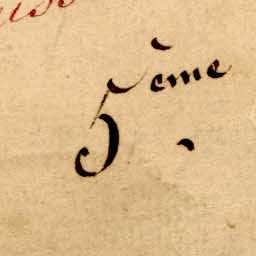 5ème.